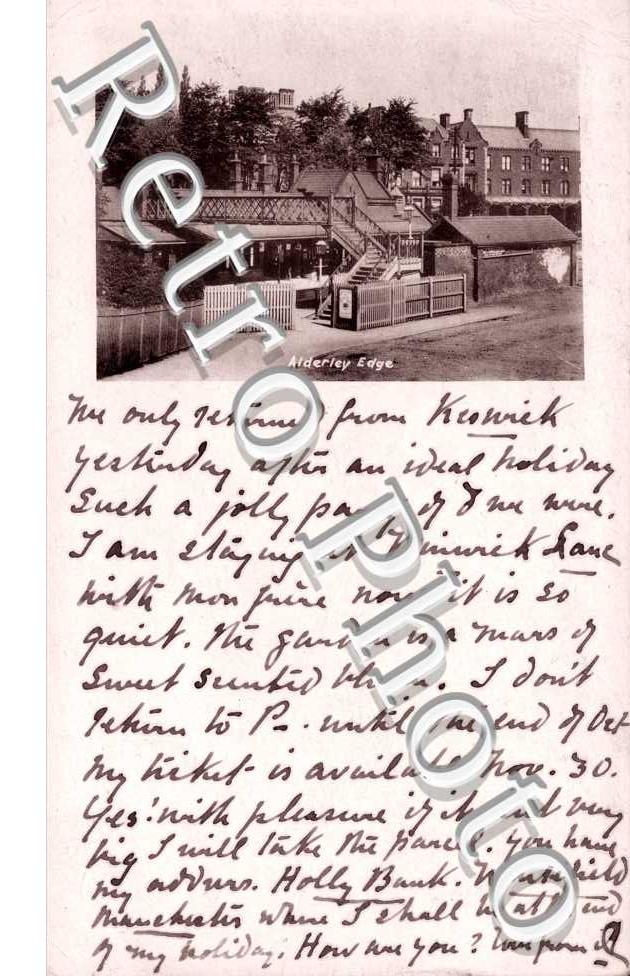 Retro Photo
Alderley Edge
We only returned from Keswick
yesterday after an ideal holiday
Such a jolly party of 8 we were.
I am staying at Winwick Lane
with mon frère now it is so
quiet. The garden is a mass of
sweet scented . I don't
return to P—. until the end of Oct
My ticket is available Nov. 30.
Yes! with pleasure if it very
big I will take the parcel. You have
my address. Holly Bank.
Manchester where I shall be at the end
of my holiday. How are you? Love from